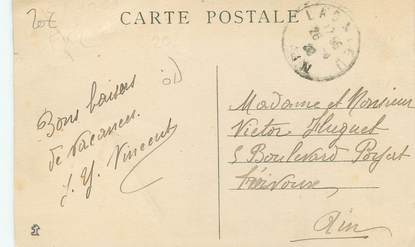 20E
CARTE POSTALE
Bons baisers
de vacances.
J. Y. Vincent
Madame et Monsieur
Victor Huguet
5 Boulevard
Ain